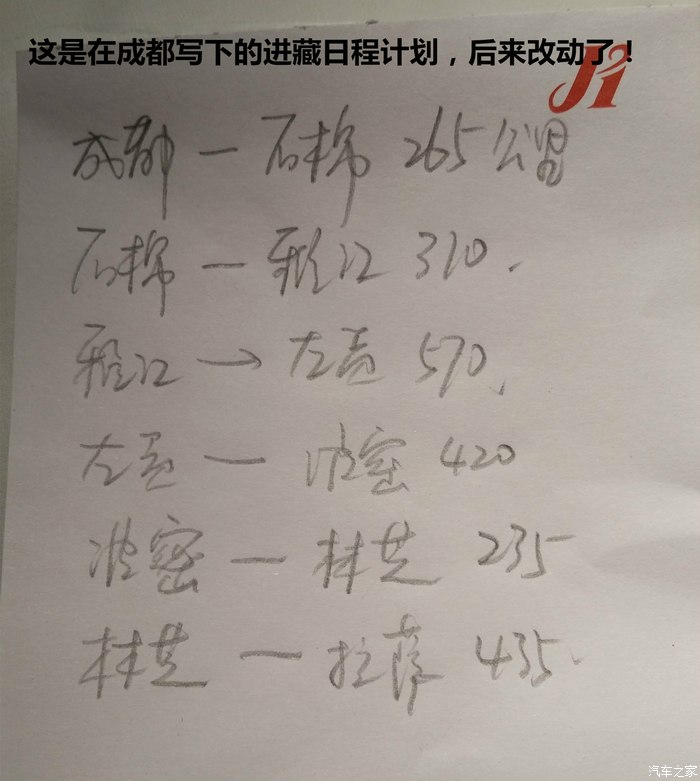 这是在成都写下的进藏日程计划，后来改动了！
J1
成都 — 石棉 265公里
石棉 — 雅江 310.
雅江 → 左贡 570.
左贡 — 波密 420
波密 — 林芝 235
林芝 — 拉萨 435.
汽车之家